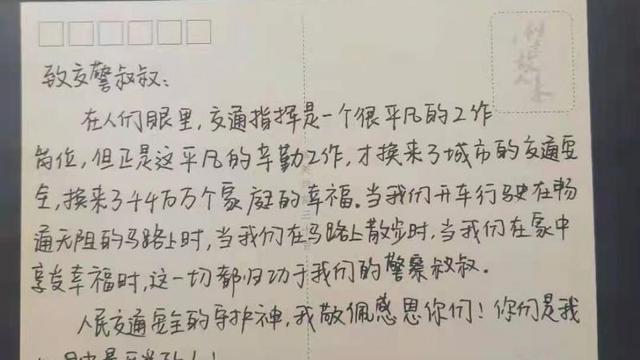 致交警叔叔：
在人们眼里，交通指挥是一个很平凡的工作
岗位，但正是这平凡的辛勤工作，才换来了城市的交通安
全，换来了千千万万个家庭的幸福。当我们开车行驶在畅
通无阻的马路上时，当我们在马路上散步时，当我们在家中
享受幸福时，这一切都归功于我们的警察叔叔。
人民交通安全的守护神，我敬佩感恩你们！你们是我